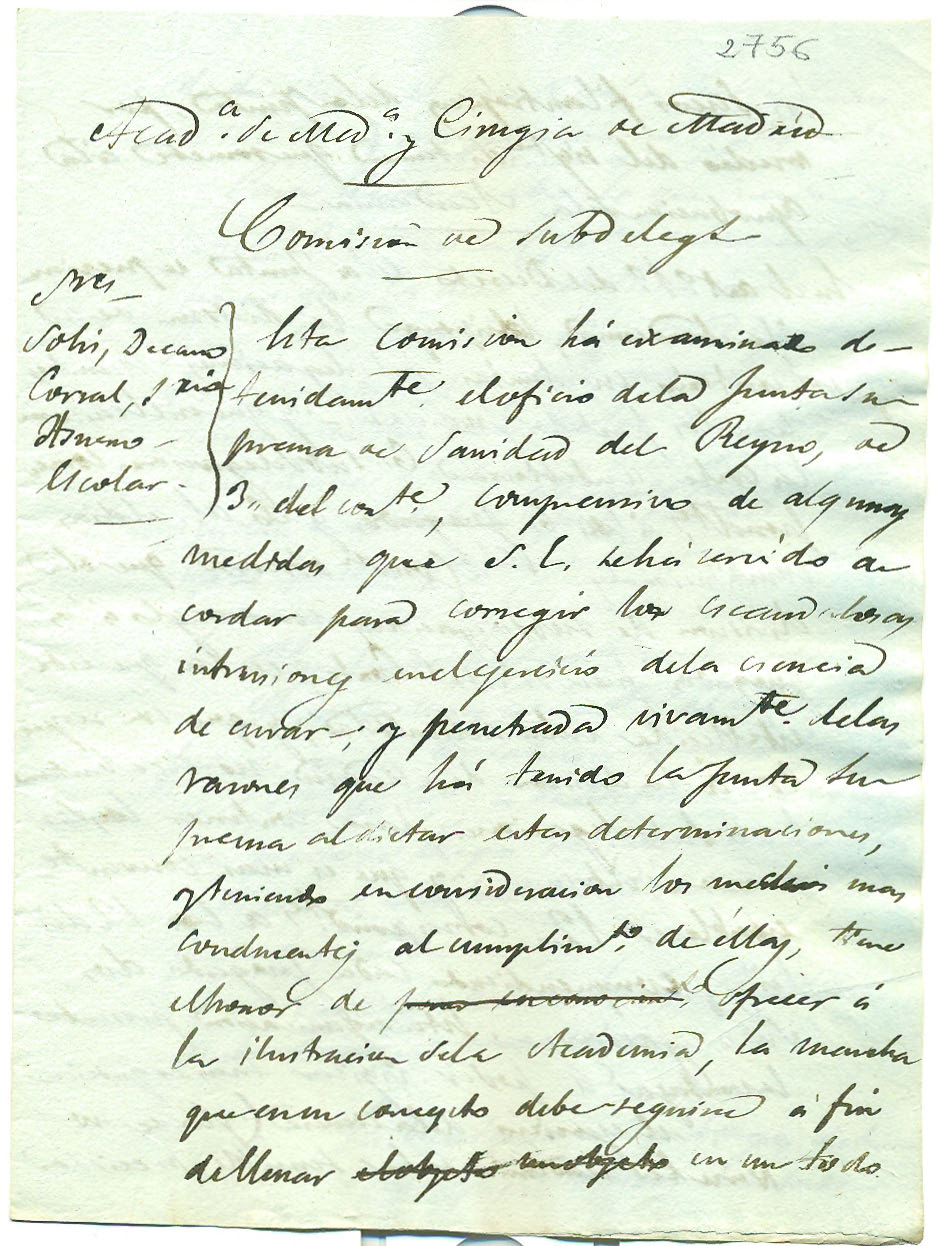 2756
Acad.ª de Med.ª y Cirugia de Madrid
Comision de Subdeleg.s
Sres
Solis, Decano
Corral, S.rio
Asuero
Escolar
Esta comision há examinado de-
tenidam.te el oficio dela Junta Su
prema de Sanidad del Reyno, de
3,, del cor.te, comprensivo de algunas
medidas que S. E. sehá servido a
cordar para corregir las escandalosas
intrusiones enelejercicio dela ciencia
de curar; y penetrada vivam.te delas
razones que há tenido la Junta Su
prema aldictar estas determinaciones,
yteniendo enconsideracion los medios mas
conducentes al cumplim.to de éllas, tiene
elhonor de ofrecer á
la ilustracion dela Academia, la marcha
que ensu concepto debe seguirse á fin
dellenar elobjeto suobjeto en un todo